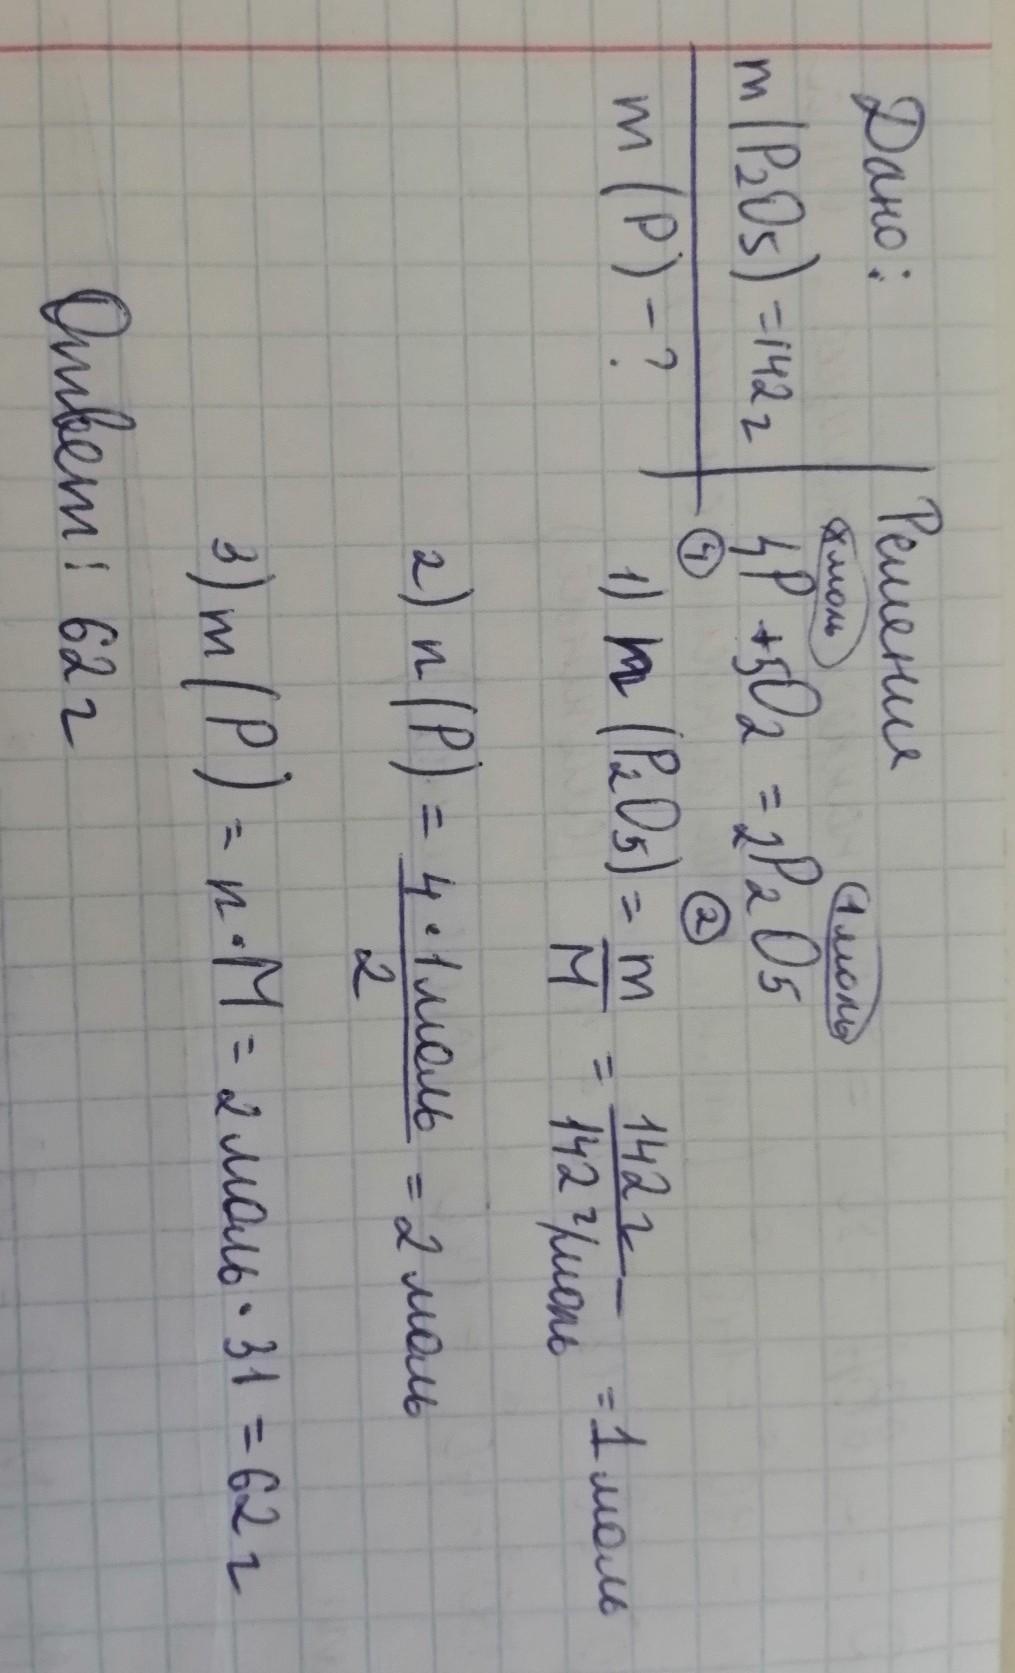 Дано:
m(P2O5)=142г
m(P)-?
Решение
xмоль 1моль
4P+5O2=2P2O5
④ ②
1) n(P2O5)=m/M=142г/142г/моль=1моль
2) n(P)=4·1моль/2=2моль
3) m(P)=n·M=2моль·31=62г
Ответ: 62г